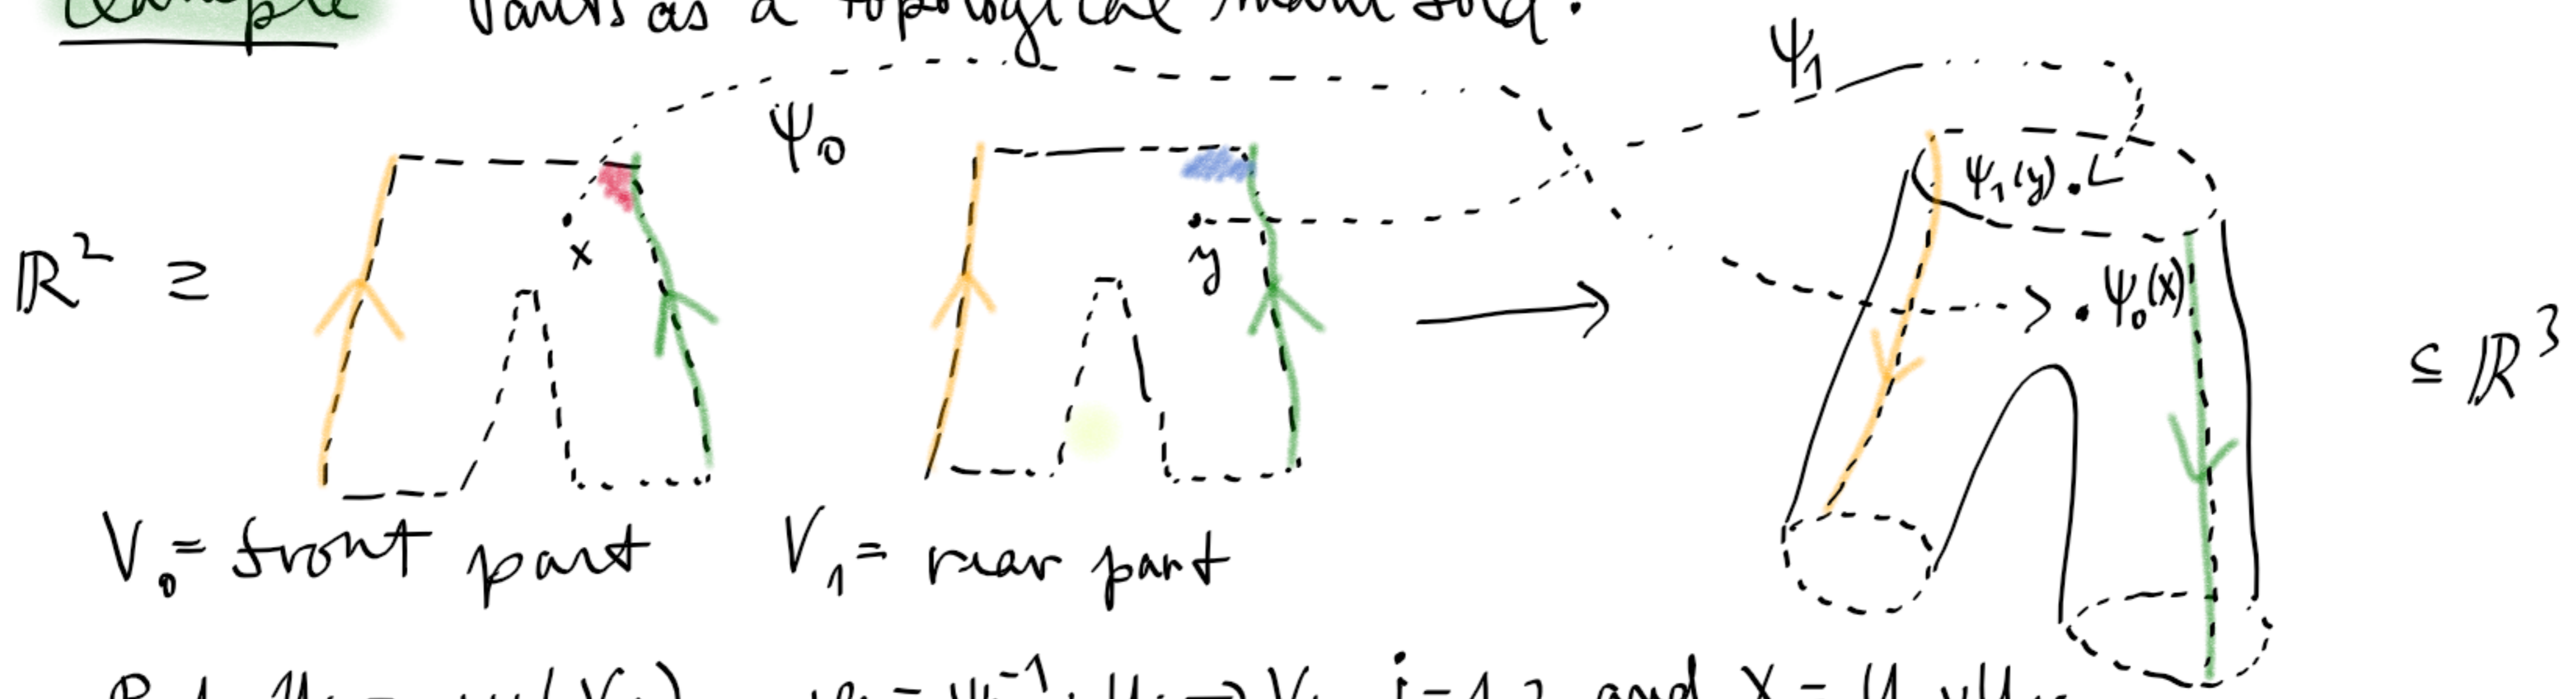 Example Pants as a topological manifold.
ψ₁
ψ₀
ψ₁(y)
x
y
ℝ² ⊇
ψ₀(x)
⊆ ℝ³
V₀ = front part V₁ = rear part